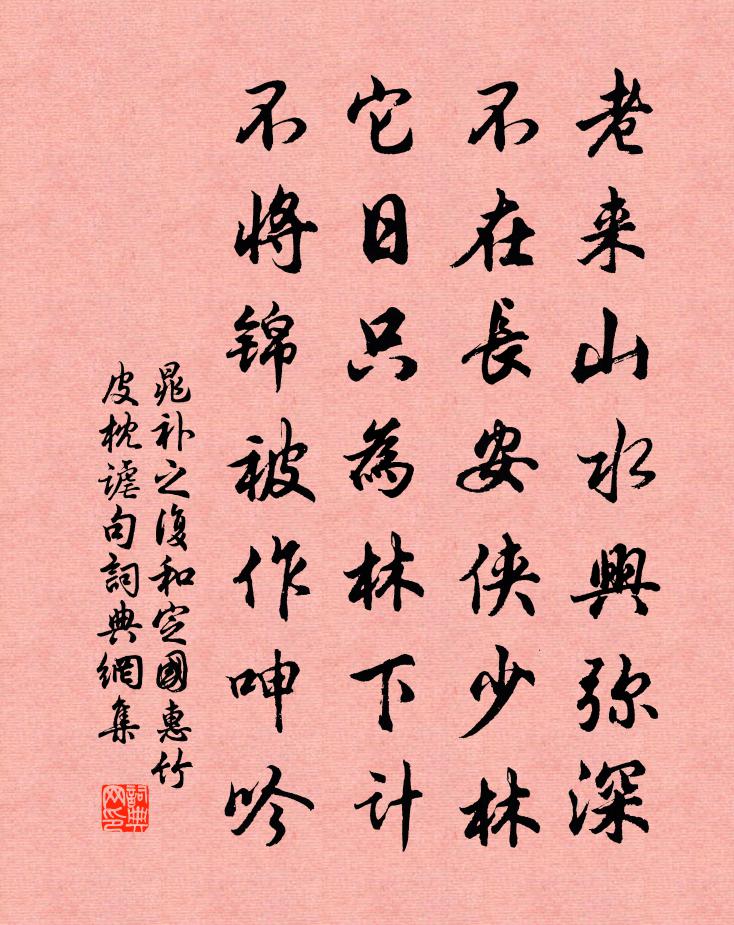 老来山水興弥深
不在長安侠少林
它日只為林下计
不将锦被作呻吟
晁补之復和定國惠竹
皮枕謔句詞典網集
詞典
网印